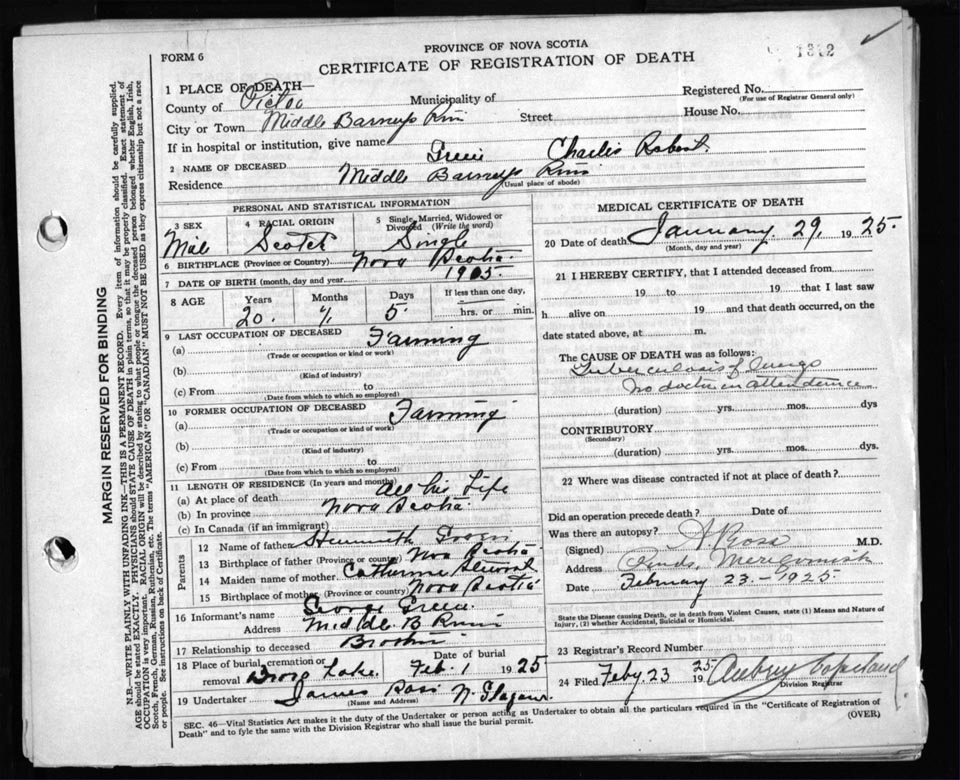 PROVINCE OF NOVA SCOTIA
1312
FORM 6
CERTIFICATE OF REGISTRATION OF DEATH
1 PLACE OF DEATH—
County of Pictou Municipality of
Registered No.
(For use of Registrar General only)
City or Town Middle Barneys River Street House No.
If in hospital or institution, give name
2 NAME OF DECEASED Charles Robert
Residence Middle Barneys River
(Usual place of abode)
PERSONAL AND STATISTICAL INFORMATION
3 SEX 4 RACIAL ORIGIN 5 Single, Married, Widowed or Divorced (Write the word)
Male Scotch Single
6 BIRTHPLACE (Province or Country) Nova Scotia
7 DATE OF BIRTH (month, day and year) 1905
8 AGE Years Months Days If less than one day,
20 5 hrs. or min.
9 LAST OCCUPATION OF DECEASED
(a) Farming
(Trade or occupation or kind or work)
(b)
(Kind of industry)
(c) From to
(Date from which to which so employed)
10 FORMER OCCUPATION OF DECEASED
(a) Farming
(Trade or occupation or kind or work)
(b)
(Kind of industry)
(c) From to
(Date from which to which so employed)
11 LENGTH OF RESIDENCE (In years and months)
(a) At place of death All his Life
(b) In province Nova Scotia
(c) In Canada (if an immigrant)
Parents
12 Name of father
13 Birthplace of father (Province or country) Nova Scotia
14 Maiden name of mother Catherine
15 Birthplace of mother (Province or country) Nova Scotia
16 Informant's name George
Address Middle B River
17 Relationship to deceased Brother
18 Place of burial, cremation or removal Date of burial
Lake Feb. 1 1925
19 Undertaker James Ross N. Glasgow
(Name and Address)
MEDICAL CERTIFICATE OF DEATH
20 Date of death January 29, 1925.
(Month, day and year)
21 I HEREBY CERTIFY, that I attended deceased from
19 to 19 that I last saw
h alive on 19 and that death occurred, on the
date stated above, at m.
The CAUSE OF DEATH was as follows:
Tuberculosis of lungs
no doctor in attendence
(duration) yrs. mos. dys
CONTRIBUTORY
(Secondary)
(duration) yrs. mos. dys.
22 Where was disease contracted if not at place of death?
Did an operation precede death? Date of
Was there an autopsy?
(Signed) Ross M.D.
Address Merigomish
Date February 23 - 1925
State the Disease causing Death, or in death from Violent Causes, state (1) Means and Nature of Injury, (2) whether Accidental, Suicidal or Homicidal.
23 Registrar's Record Number
24 Filed Feby. 23 1925 Aubrey Copeland
Division Registrar
SEC. 46—Vital Statistics Act makes it the duty of the Undertaker or person acting as Undertaker to obtain all the particulars required in the "Certificate of Registration of
Death" and to fyle the same with the Division Registrar who shall issue the burial permit.
(OVER)
MARGIN RESERVED FOR BINDING
N.B.—WRITE PLAINLY WITH UNFADING INK—THIS IS A PERMANENT RECORD. Every item of information should be carefully supplied.
AGE should be stated EXACTLY. PHYSICIANS should STATE CAUSE OF DEATH in plain terms, so that it may be properly classified. Exact statement of
OCCUPATION is very important. RACIAL ORIGIN will be described by stating to what people or tongue the deceased person belonged whether English, Irish,
Scotch, French, German, Russian, Ruthenian, etc. The terms "AMERICAN" OR "CANADIAN" MUST NOT BE USED as they express citizenship but not a race
or people. See instructions on back of Certificate.